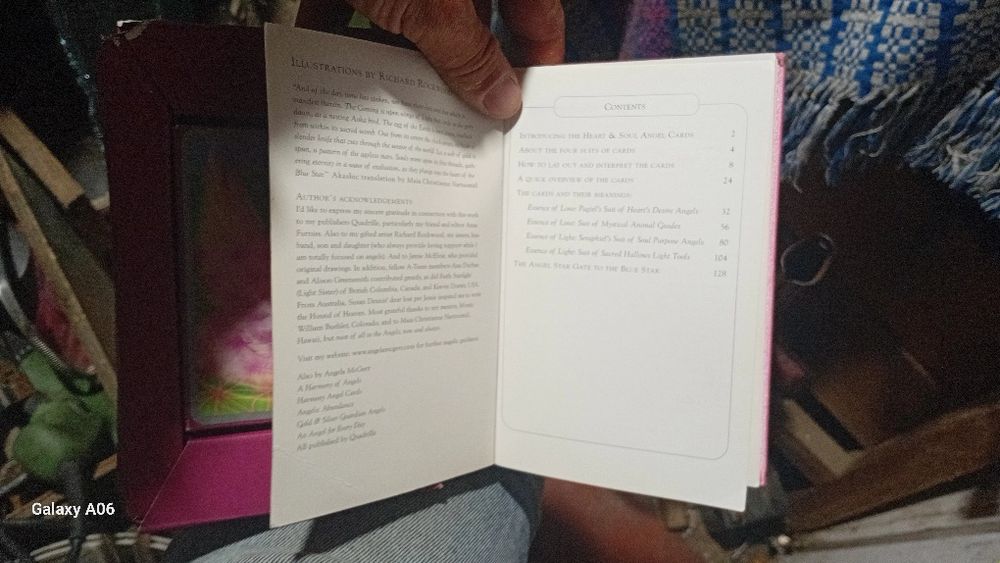 ILLUSTRATIONS BY RICHARD
"And of the
manifest therein. The Coming is upon wings of
dawn, as a nesting Auka bird. The egg of the Earth
from within its sacred womb. Out from its
slender knife that cuts through the
spun, a pattern of the ageless
ering eternity in a wave of realisation, as they plunge into the heart of the
Blue Star." Akashic translation by Maia Christianne Nartoomid
AUTHOR'S ACKNOWLEDGEMENTS
I'd like to express my sincere gratitude in connection with this work
to my publishers Quadrille, particularly my friend and editor Anne
Furniss. Also to my gifted artist Richard Rockwood, my sisters, hus-
band, son and daughter (who always provide loving support while I
am totally focused on angels). And to Jamie McElroy, who provided
original drawings. In addition, fellow A-Team members Ann
and Alison Greensmith contributed greatly, as did Faith Starlight
(Light Sister) of British Columbia, Canada, and Kerrin USA.
From Australia, Susan Dennis' dear lost pet Jessie inspired me to write
the Hound of Heaven. Most grateful thanks to my mentor,
William Buehler, Colorado, and to Maia Christianne Nartoomid,
Hawaii, but most of all to the Angels, now and always.
Visit my website: www.angelamcgerr.com for further angelic guidance
Also by Angela McGerr
A Harmony of Angels
Harmony Angel Cards
Angelic Abundance
Gold & Silver Guardian Angels
An Angel for Every Day
All published by Quadrille
CONTENTS
INTRODUCING THE HEART & SOUL ANGEL CARDS 2
ABOUT THE FOUR SUITS OF CARDS 4
HOW TO LAY OUT AND INTERPRET THE CARDS 8
A QUICK OVERVIEW OF THE CARDS 24
THE CARDS AND THEIR MEANINGS:
Essence of Love: Pagiel's Suit of Heart's Desire Angels 32
Essence of Love: Suit of Mystical Animal Guides 56
Essence of Light: Seraphiel's Suit of Soul Purpose Angels 80
Essence of Light: Suit of Sacred Hallows Light Tools 104
THE ANGEL STAR GATE TO THE BLUE STAR 128
Galaxy A06